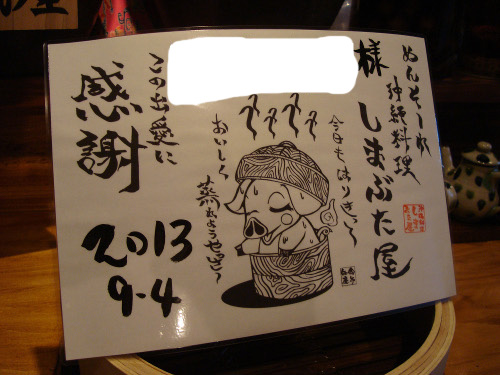 めんそーれ
沖縄料理
しまぶた屋
様
今日もはりきって
おいしく
蒸されようやっと〜
この出愛に
感謝
2013
9-4